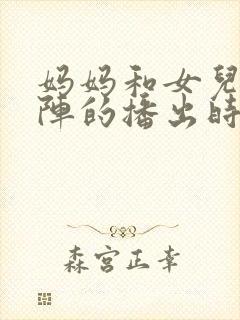 妈妈和女兒
陣的播出時
森宮正幸